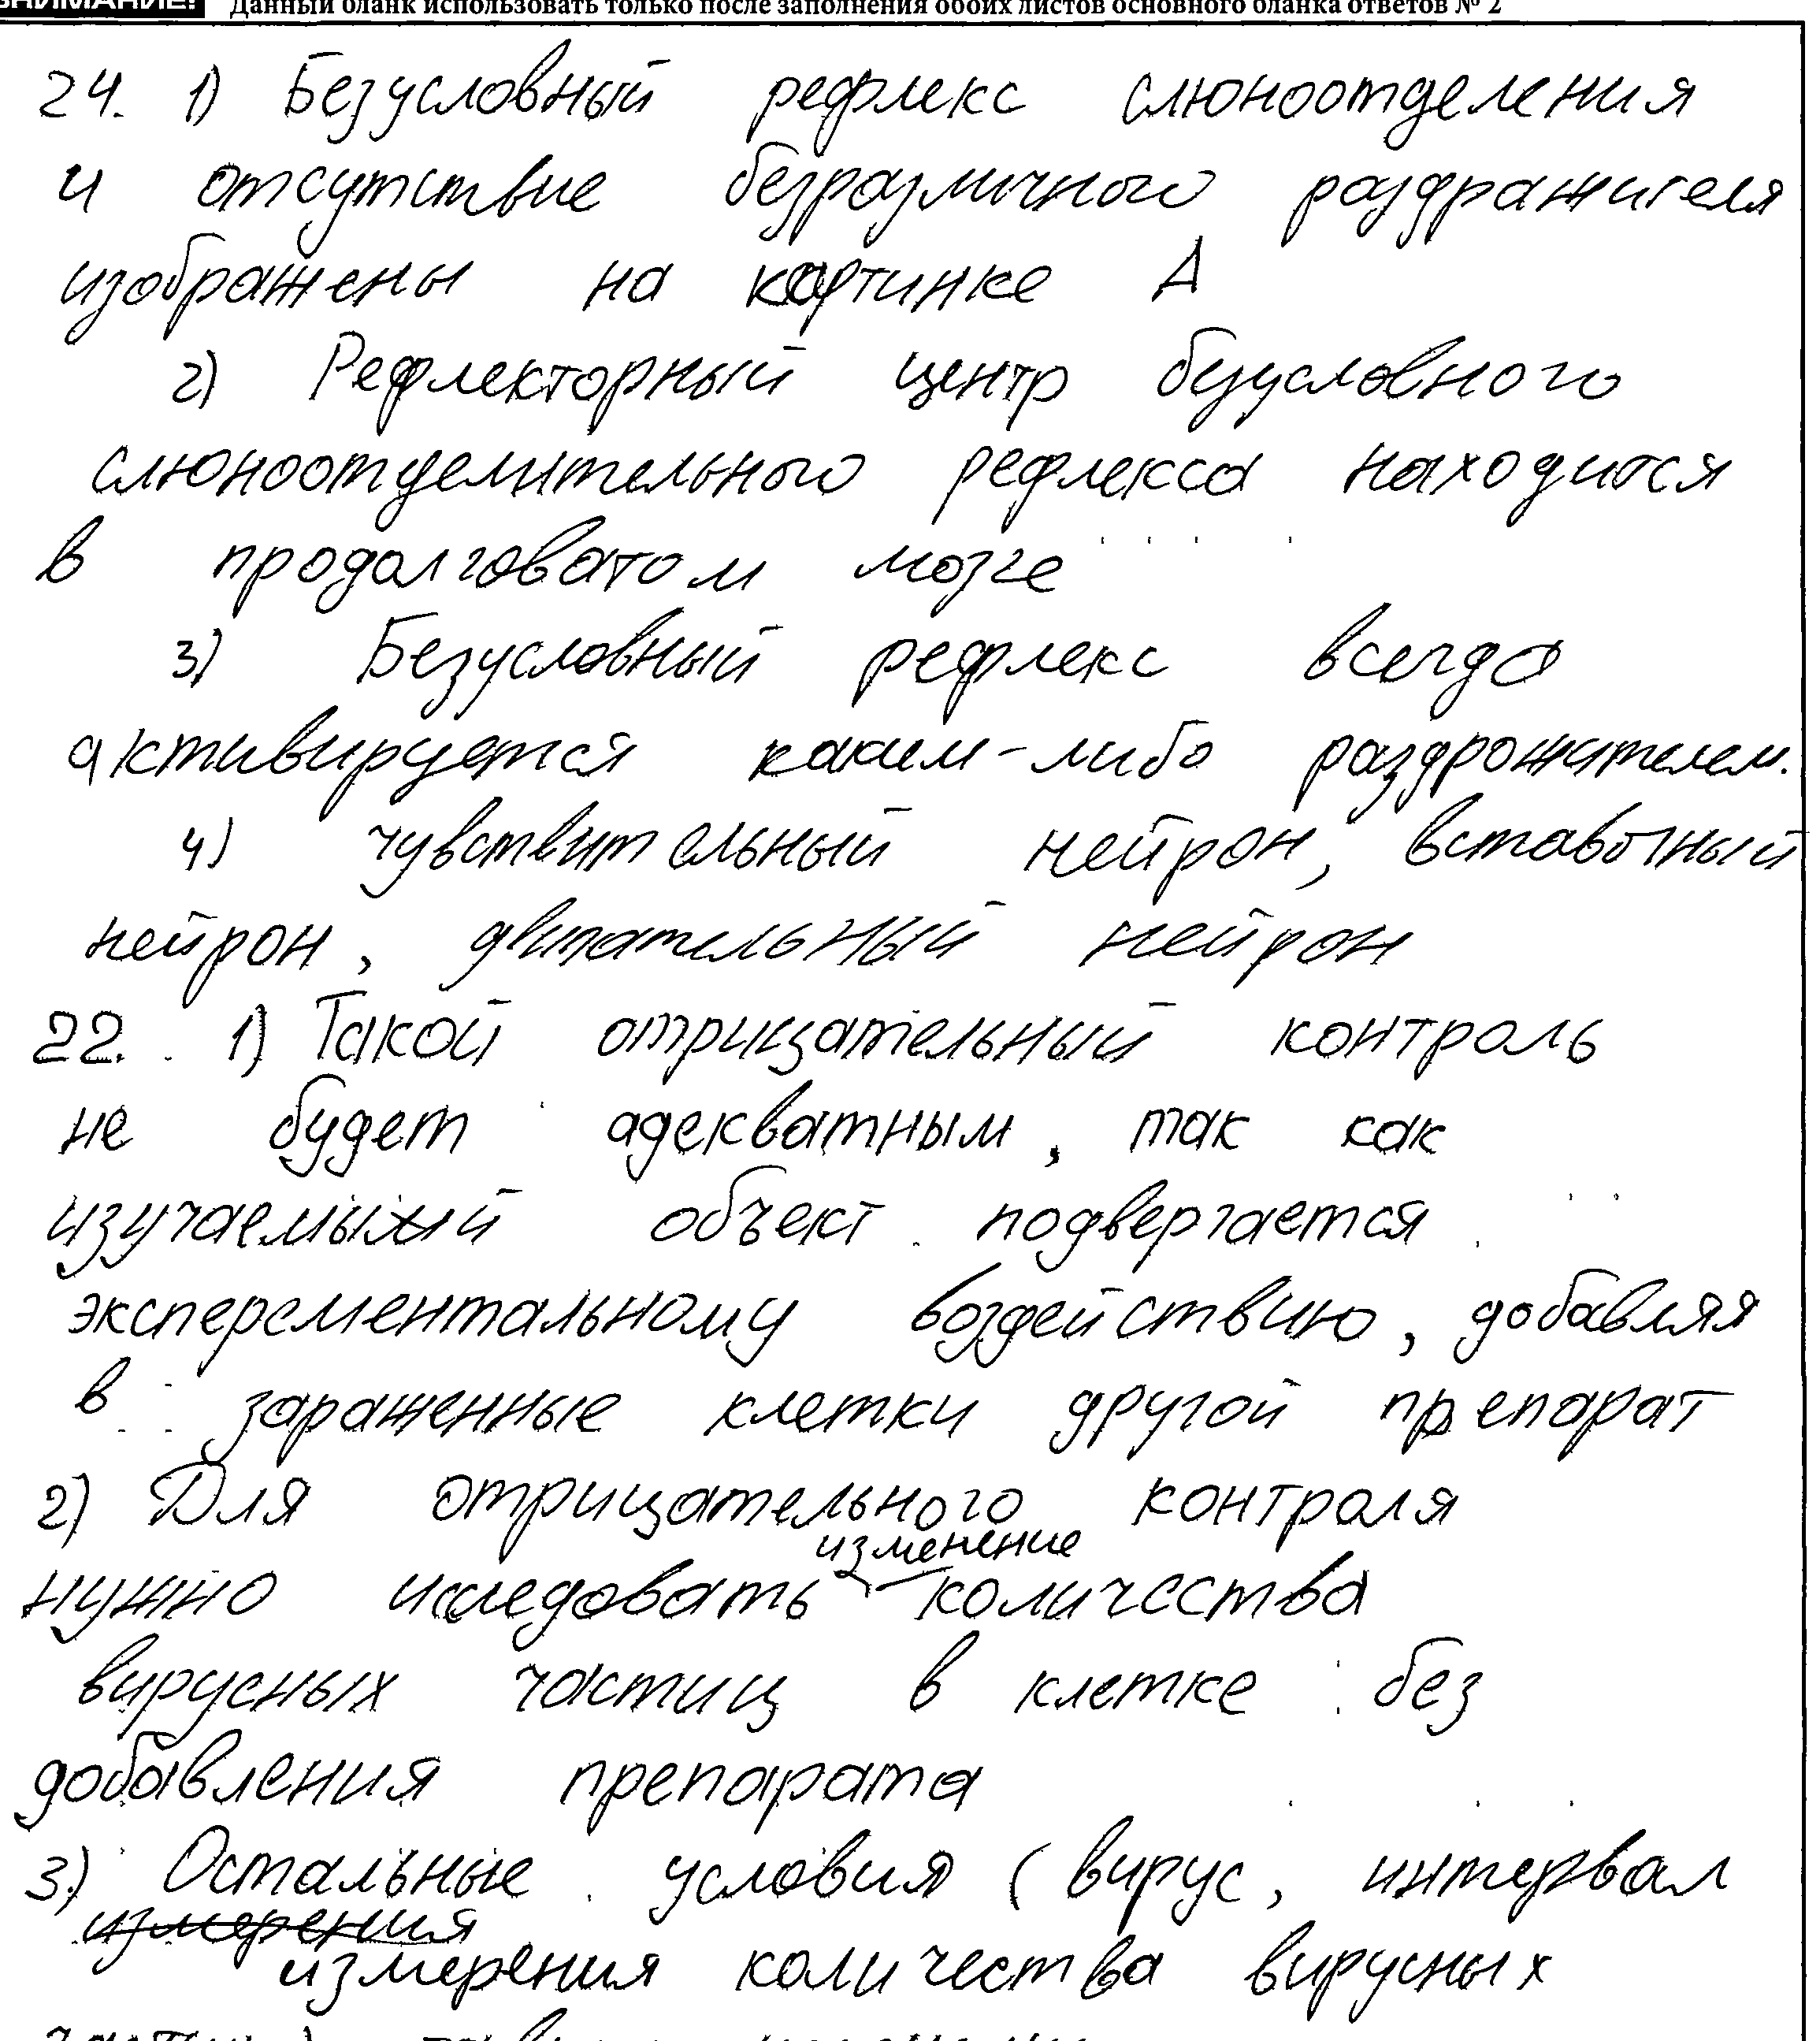 ВНИМАНИЕ! Данный бланк использовать только после заполнения обоих листов основного бланка ответов № 2
24. 1) Безусловный рефлекс слюноотделения
и отсутствие безразличного раздражителя
изображены на картинке А
2) Рефлекторный центр безусловного
слюноотделительного рефлекса находится
в продолговатом мозге
3) Безусловный рефлекс всегда
активируется каким-либо раздрожителем.
4) чувствительный нейрон, вставочный
нейрон, двигательный нейрон
22. 1) Такой отрицательный контроль
не будет адекватным, так как
изучаемый объект подвергается
эксперементальному воздействию, добавляя
в зараженные клетки другой препарат
2) Для отрицательного контроля
изменение
нужно исследовать количества
вирусных частиц в клетке без
добавления препарата
3) Остальные условия (вирус, интервал
измерения
измерения количества вирусных